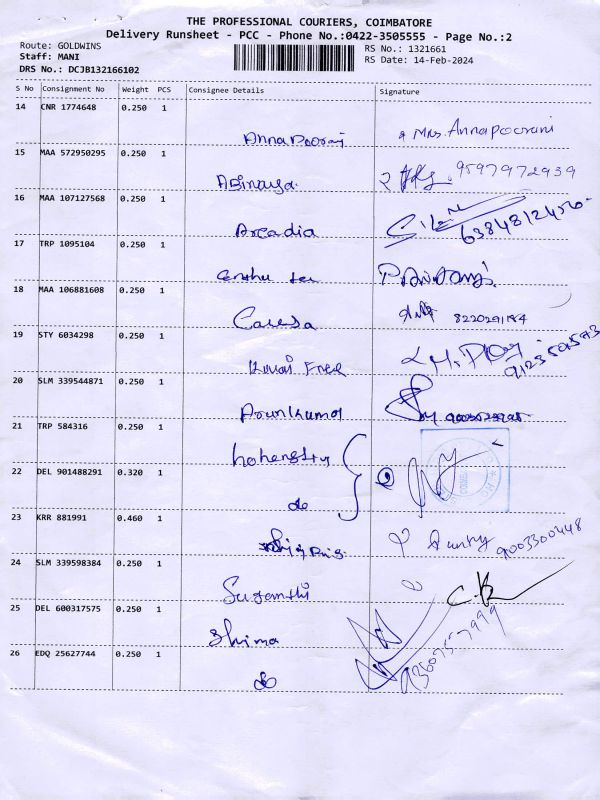 THE PROFESSIONAL COURIERS, COIMBATORE
Delivery Runsheet - PCC - Phone No.:0422-3505555 - Page No.:2
Route: GOLDWINS
RS No.: 1321661
Staff: MANI
RS Date: 14-Feb-2024
DRS No.: DCJB132166102
S No Consignment No Weight PCS Consignee Details Signature
14 CNR 1774648 0.250 1
Annapoorani Mrs. Annapoorani
15 MAA 572950295 0.250 1
Abinaya 9597972939
16 MAA 107127568 0.250 1
Arcadia 6384812456
17 TRP 1095104 0.250 1
18 MAA 106881608 0.250 1
8220291184
19 STY 6034298 0.250 1
20 SLM 339544871 0.250 1
Arunkumar
21 TRP 584316 0.250 1
22 DEL 901488291 0.320 1
do
23 KRR 881991 0.460 1
9003300448
24 SLM 339598384 0.250 1
Suganthi
25 DEL 600317575 0.250 1
Shima
26 EDQ 25627744 0.250 1
do